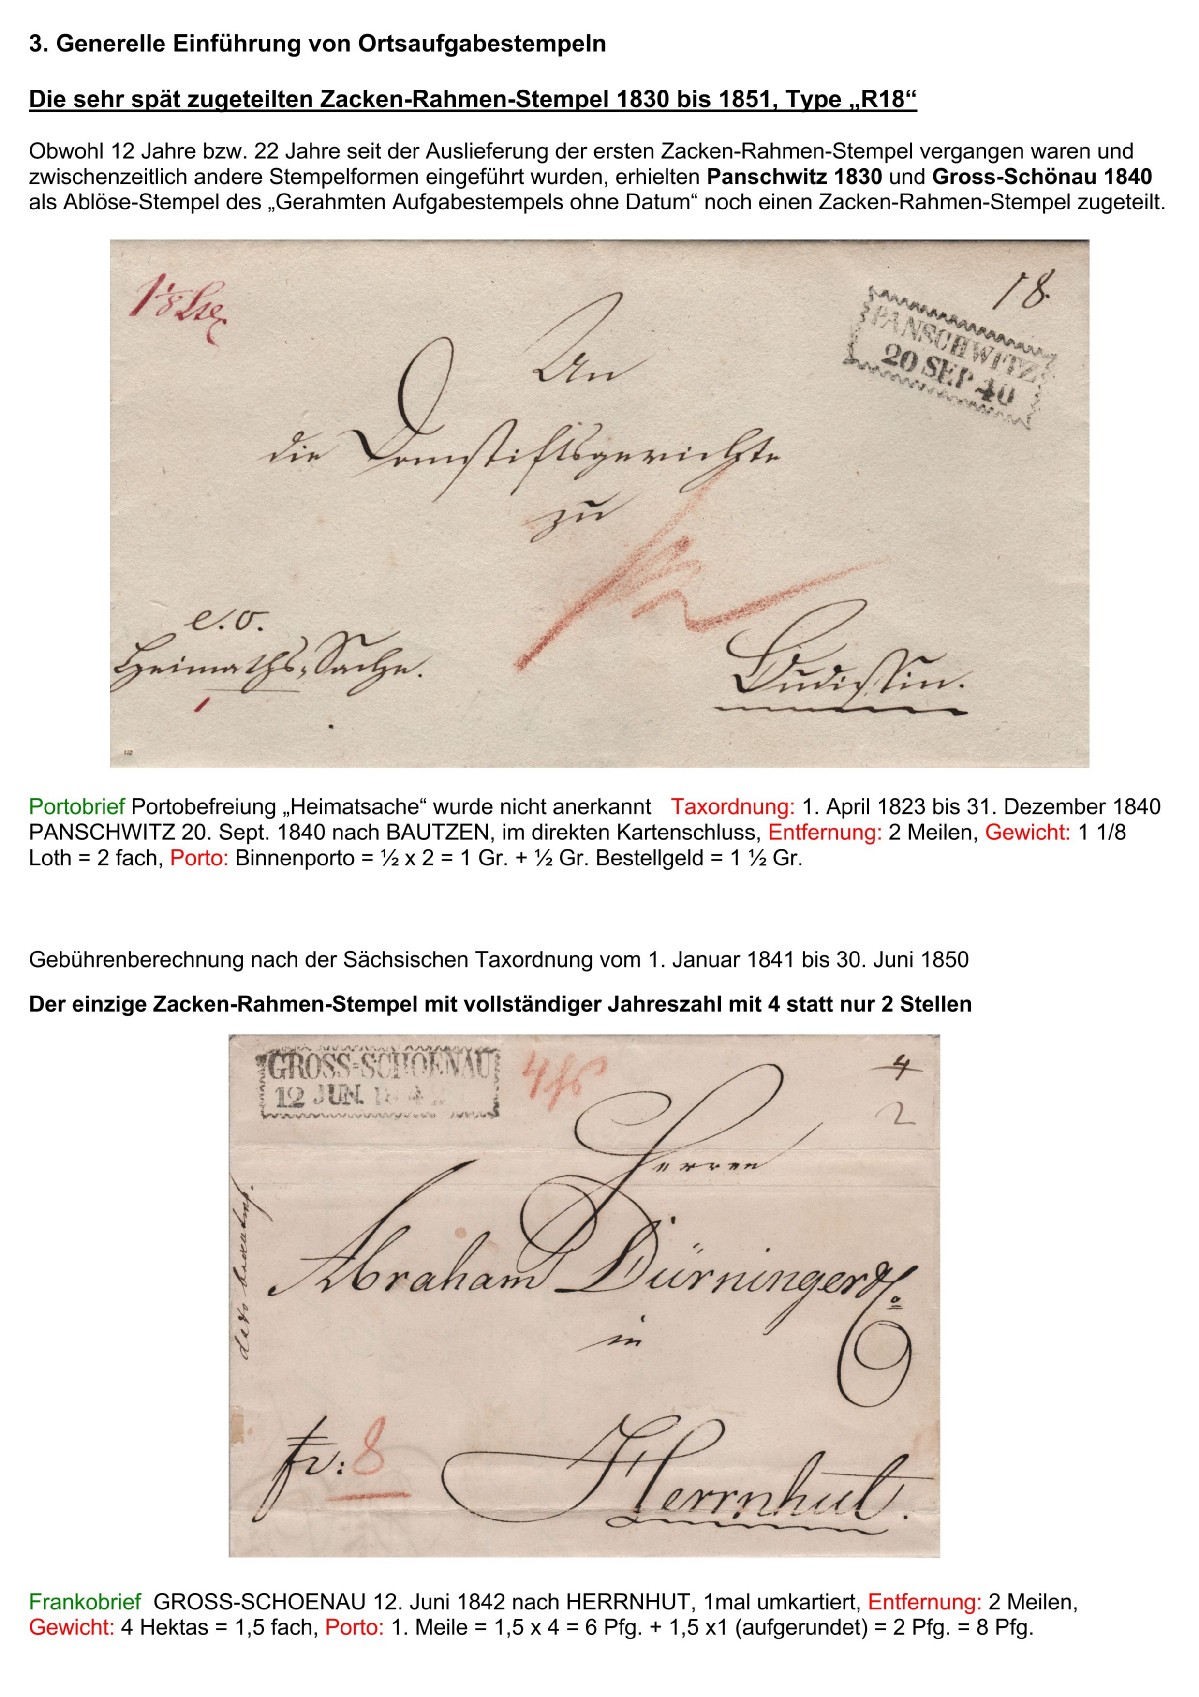 3. Generelle Einführung von Ortsaufgabestempeln
Die sehr spät zugeteilten Zacken-Rahmen-Stempel 1830 bis 1851, Type „R18“
Obwohl 12 Jahre bzw. 22 Jahre seit der Auslieferung der ersten Zacken-Rahmen-Stempel vergangen waren und
zwischenzeitlich andere Stempelformen eingeführt wurden, erhielten Panschwitz 1830 und Gross-Schönau 1840
als Ablöse-Stempel des „Gerahmten Aufgabestempels ohne Datum“ noch einen Zacken-Rahmen-Stempel zugeteilt.
18.
PANSCHWITZ
20 SEP 40
An
die Domstiftsgerichte
zu
e.o.
Heimaths-Sache.
Budissin.
Portobrief Portobefreiung „Heimatsache“ wurde nicht anerkannt Taxordnung: 1. April 1823 bis 31. Dezember 1840
PANSCHWITZ 20. Sept. 1840 nach BAUTZEN, im direkten Kartenschluss, Entfernung: 2 Meilen, Gewicht: 1 1/8
Loth = 2 fach, Porto: Binnenporto = ½ x 2 = 1 Gr. + ½ Gr. Bestellgeld = 1 ½ Gr.
Gebührenberechnung nach der Sächsischen Taxordnung vom 1. Januar 1841 bis 30. Juni 1850
Der einzige Zacken-Rahmen-Stempel mit vollständiger Jahreszahl mit 4 statt nur 2 Stellen
GROSS-SCHOENAU
12 JUN. 184
4
2
Herren
Abraham Dürninger & Co
in
fr: 8
Herrnhut.
Frankobrief GROSS-SCHOENAU 12. Juni 1842 nach HERRNHUT, 1mal umkartiert, Entfernung: 2 Meilen,
Gewicht: 4 Hektas = 1,5 fach, Porto: 1. Meile = 1,5 x 4 = 6 Pfg. + 1,5 x1 (aufgerundet) = 2 Pfg. = 8 Pfg.